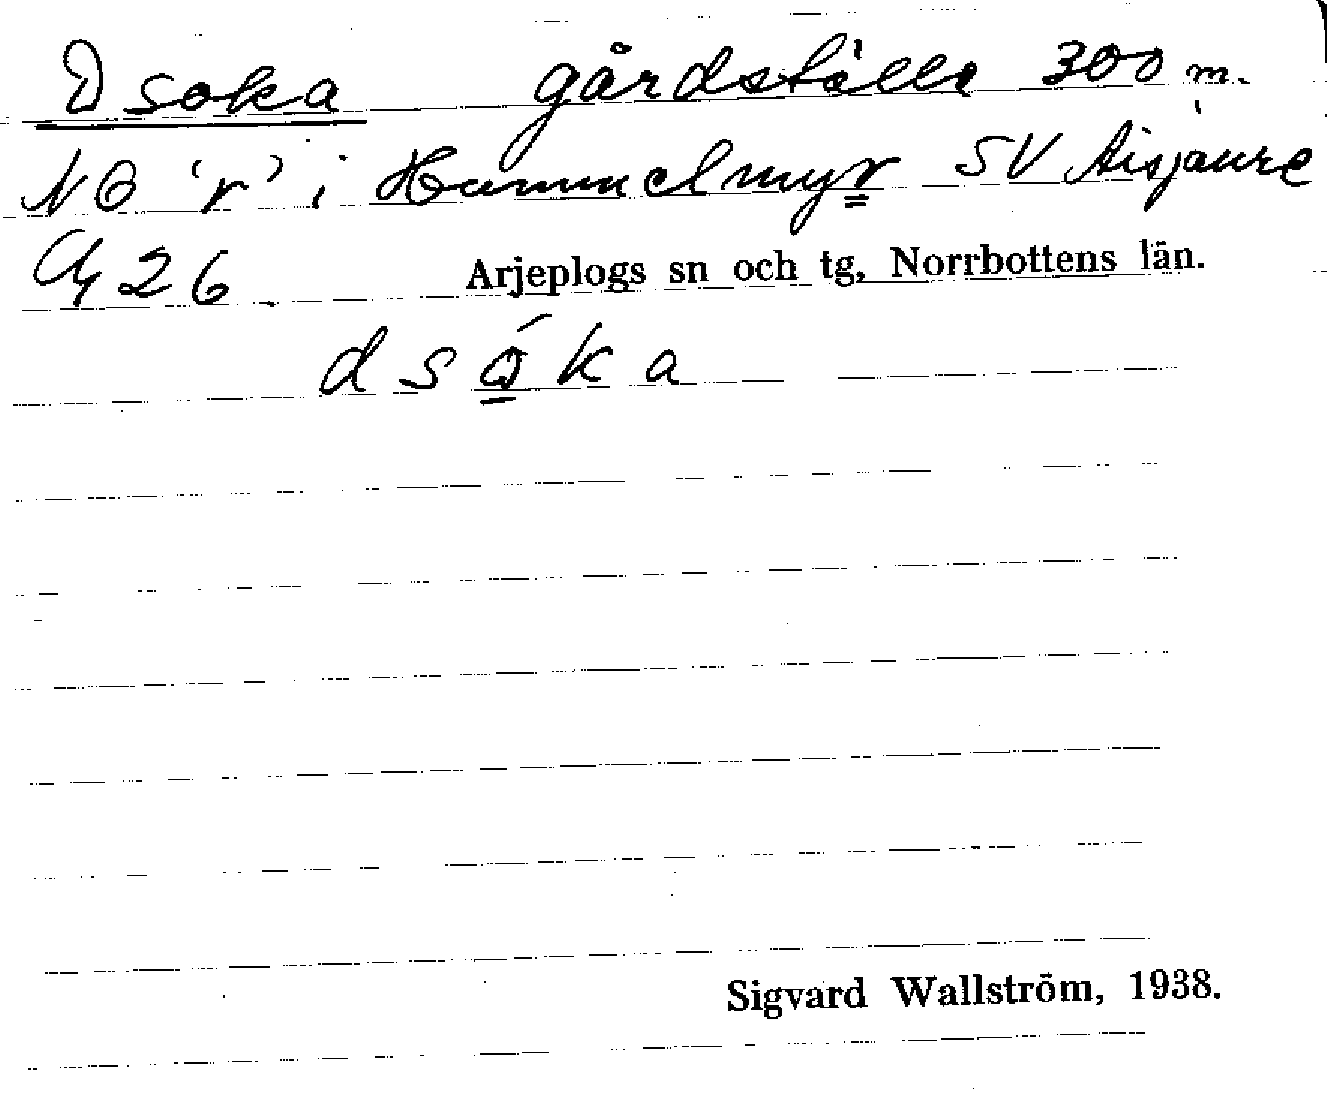 Dsoka gårdställe 300 m.
NO 'r' i Hummelmyr SV Aisjaure
26 Arjeplogs sn och tg, Norrbottens län.
dsóka
Sigvard Wallström, 1938.